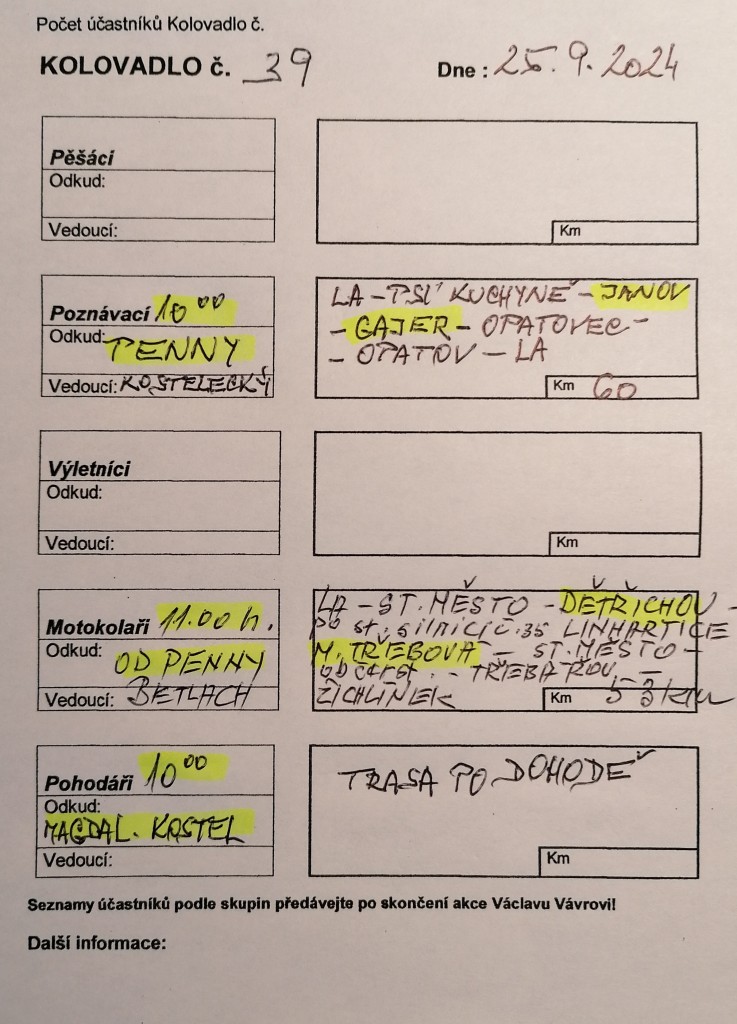 Počet účastníků Kolovadlo č.
KOLOVADLO č. 39
Dne : 25.9.2024
Pěšáci
Odkud:
Vedoucí:
Km
Poznávací 10 00
Odkud: PENNY
Vedoucí: KOSTELECKÝ
LA – PSÍ KUCHYNĚ – JANOV
– GAJER – OPATOVEC –
– OPATOV – LA
Km 60
Výletníci
Odkud:
Vedoucí:
Km
Motokolaři 11.00 h.
Odkud: OD PENNY
Vedoucí: BETLACH
LA – ST. MĚSTO – DĚTŘICHOV –
po st. silnici č. 35 LINHARTICE
M. TŘEBOVÁ – ST. MĚSTO –
TŘEBAŘOV –
ŽICHLÍNEK
Km 53 km
Pohodáři 10 00
Odkud:
MAGDAL. KOSTEL
Vedoucí:
TRASA PO DOHODĚ
Km
Seznamy účastníků podle skupin předávejte po skončení akce Václavu Vávrovi!
Další informace: